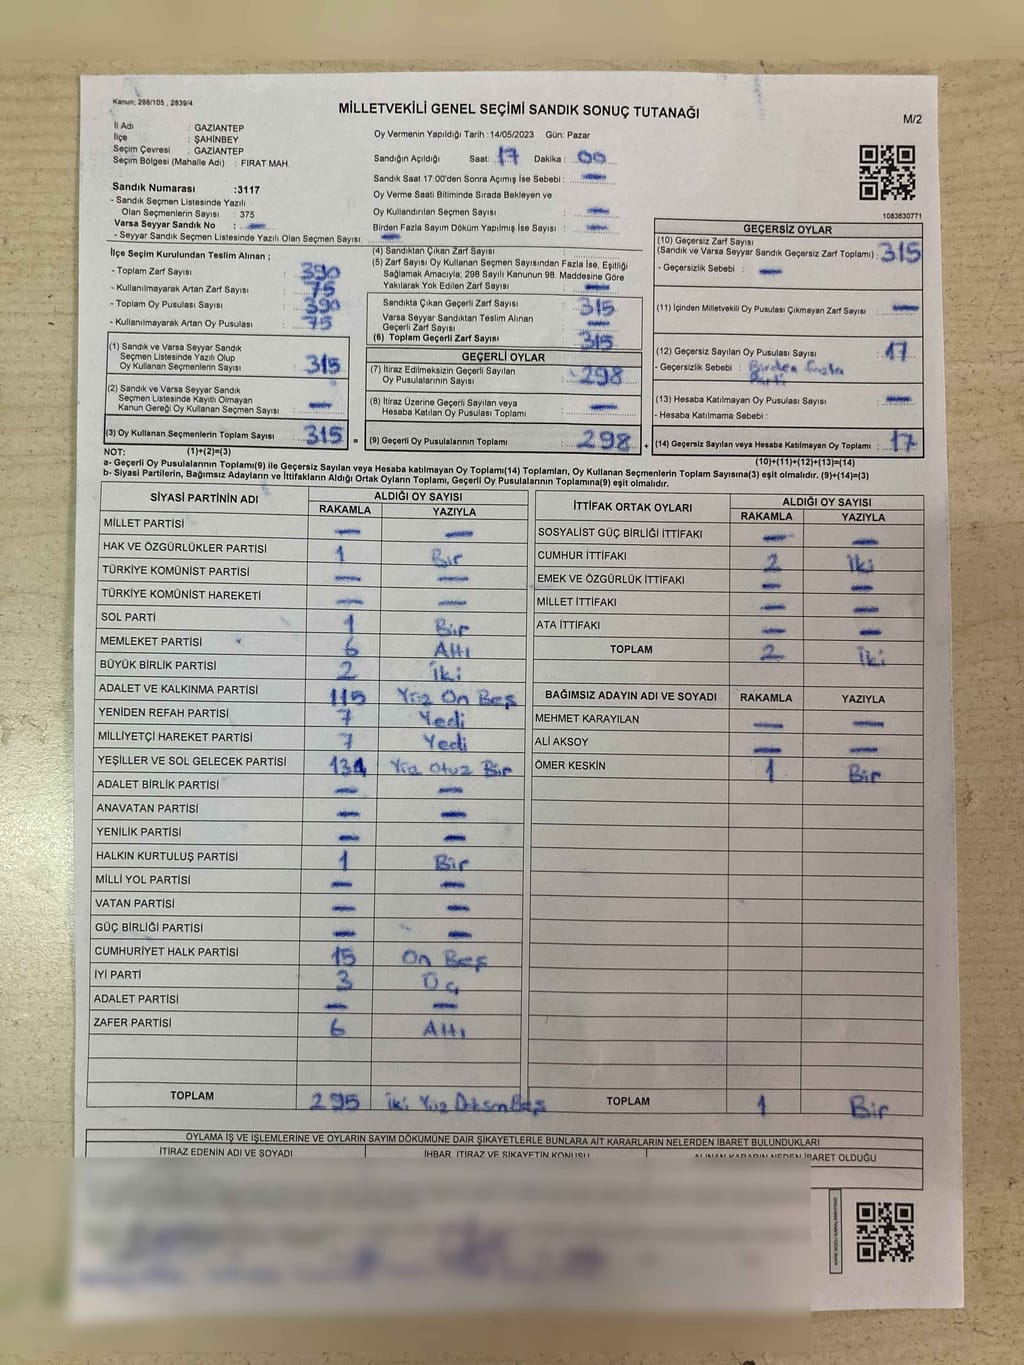 Kanun; 298/105 , 2839/4
MİLLETVEKİLİ GENEL SEÇİMİ SANDIK SONUÇ TUTANAĞI
M/2
İl Adı : GAZİANTEP
İlçe : ŞAHİNBEY
Seçim Çevresi : GAZİANTEP
Seçim Bölgesi (Mahalle Adı) : FIRAT MAH.
Sandık Numarası :3117
- Sandık Seçmen Listesinde Yazılı
Olan Seçmenlerin Sayısı : 375
Varsa Seyyar Sandık No : —
- Seyyar Sandık Seçmen Listesinde Yazılı Olan Seçmen Sayısı: —
İlçe Seçim Kurulundan Teslim Alınan ;
- Toplam Zarf Sayısı : 390
- Kullanılmayarak Artan Zarf Sayısı : 75
- Toplam Oy Pusulası Sayısı : 390
- Kullanılmayarak Artan Oy Pusulası : 75
(1) Sandık ve Varsa Seyyar Sandık
Seçmen Listesinde Yazılı Olup
Oy Kullanan Seçmenlerin Sayısı : 315
(2) Sandık ve Varsa Seyyar Sandık
Seçmen Listesinde Kayıtlı Olmayan
Kanun Gereği Oy Kullanan Seçmen Sayısı : —
(3) Oy Kullanan Seçmenlerin Toplam Sayısı : 315 =
Oy Vermenin Yapıldığı Tarih : 14/05/2023 Gün: Pazar
Sandığın Açıldığı Saat: 17 Dakika : 00
Sandık Saat 17:00'den Sonra Açımış İse Sebebi : —
Oy Verme Saati Bitiminde Sırada Bekleyen ve
Oy Kullandırılan Seçmen Sayısı : —
Birden Fazla Sayım Döküm Yapılmış İse Sayısı : —
(4) Sandıktan Çıkan Zarf Sayısı :
(5) Zarf Sayısı Oy Kullanan Seçmen Sayısından Fazla İse, Eşitliği
Sağlamak Amacıyla; 298 Sayılı Kanunun 98. Maddesine Göre
Yakılarak Yok Edilen Zarf Sayısı : —
Sandıkta Çıkan Geçerli Zarf Sayısı : 315
Varsa Seyyar Sandıktan Teslim Alınan
Geçerli Zarf Sayısı : —
(6) Toplam Geçerli Zarf Sayısı : 315
GEÇERLİ OYLAR
(7) İtiraz Edilmeksizin Geçerli Sayılan
Oy Pusulalarının Sayısı : 298
(8) İtiraz Üzerine Geçerli Sayılan veya
Hesaba Katılan Oy Pusulası Toplamı : —
(9) Geçerli Oy Pusulalarının Toplamı : 298 +
1083630771
GEÇERSİZ OYLAR
(10) Geçersiz Zarf Sayısı
(Sandık ve Varsa Seyyar Sandık Geçersiz Zarf Toplamı) : 315
- Geçersizlik Sebebi : —
(11) İçinden Milletvekili Oy Pusulası Çıkmayan Zarf Sayısı : —
(12) Geçersiz Sayılan Oy Pusulası Sayısı : 17
- Geçersizlik Sebebi : Birden fazla
Parti
(13) Hesaba Katılmayan Oy Pusulası Sayısı : —
- Hesaba Katılmama Sebebi :
(14) Geçersiz Sayılan veya Hesaba Katılmayan Oy Toplamı : 17
NOT: (1)+(2)=(3) (10)+(11)+(12)+(13)=(14)
a- Geçerli Oy Pusulalarının Toplamı(9) ile Geçersiz Sayılan veya Hesaba katılmayan Oy Toplamı(14) Toplamları, Oy Kullanan Seçmenlerin Toplam Sayısına(3) eşit olmalıdır. (9)+(14)=(3)
b- Siyasi Partilerin, Bağımsız Adayların ve İttifakların Aldığı Ortak Oyların Toplamı, Geçerli Oy Pusulalarının Toplamına(9) eşit olmalıdır.
SİYASİ PARTİNİN ADI ALDIĞI OY SAYISI
RAKAMLA YAZIYLA
MİLLET PARTİSİ — —
HAK VE ÖZGÜRLÜKLER PARTİSİ 1 Bir
TÜRKİYE KOMÜNİST PARTİSİ — —
TÜRKİYE KOMÜNİST HAREKETİ — —
SOL PARTİ 1 Bir
MEMLEKET PARTİSİ 6 Altı
BÜYÜK BİRLİK PARTİSİ 2 İki
ADALET VE KALKINMA PARTİSİ 115 Yüz On Beş
YENİDEN REFAH PARTİSİ 7 Yedi
MİLLİYETÇİ HAREKET PARTİSİ 7 Yedi
YEŞİLLER VE SOL GELECEK PARTİSİ 131 Yüz Otuz Bir
ADALET BİRLİK PARTİSİ — —
ANAVATAN PARTİSİ — —
YENİLİK PARTİSİ — —
HALKIN KURTULUŞ PARTİSİ 1 Bir
MİLLİ YOL PARTİSİ — —
VATAN PARTİSİ — —
GÜÇ BİRLİĞİ PARTİSİ — —
CUMHURİYET HALK PARTİSİ 15 On Beş
İYİ PARTİ 3 Üç
ADALET PARTİSİ — —
ZAFER PARTİSİ 6 Altı
TOPLAM 295 İki Yüz Doksan Beş
İTTİFAK ORTAK OYLARI ALDIĞI OY SAYISI
RAKAMLA YAZIYLA
SOSYALİST GÜÇ BİRLİĞİ İTTİFAKI — —
CUMHUR İTTİFAKI 2 İki
EMEK VE ÖZGÜRLÜK İTTİFAKI — —
MİLLET İTTİFAKI — —
ATA İTTİFAKI — —
TOPLAM 2 İki
BAĞIMSIZ ADAYIN ADI VE SOYADI RAKAMLA YAZIYLA
MEHMET KARAYILAN — —
ALİ AKSOY — —
ÖMER KESKİN 1 Bir
TOPLAM 1 Bir
OYLAMA İŞ VE İŞLEMLERİNE VE OYLARIN SAYIM DÖKÜMÜNE DAİR ŞİKAYETLERLE BUNLARA AİT KARARLARIN NELERDEN İBARET BULUNDUKLARI
İTİRAZ EDENİN ADI VE SOYADI İHBAR, İTİRAZ VE ŞİKAYETİN KONUSU ALINAN KARARIN NEDEN İBARET OLDUĞU